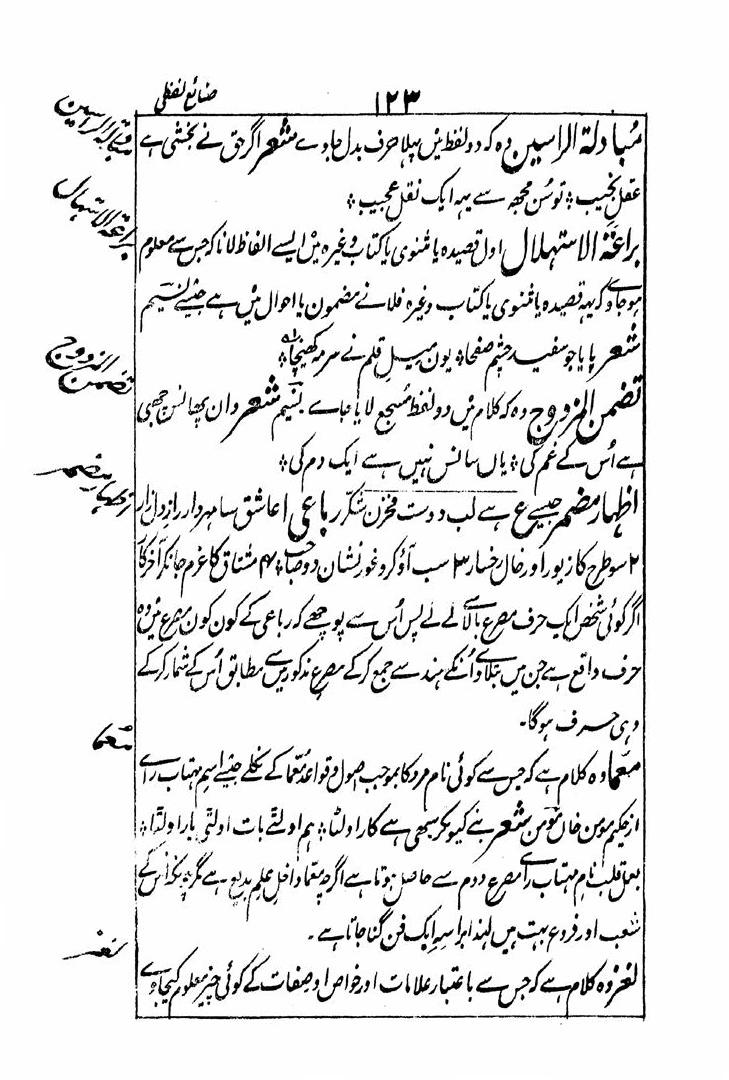 ۱۲۳
صنائع لفظی
مبادلۃ الراسین
مُبادلۃ الراسین وہ کہ دو لفظ میں پہلا حرف بدل جاوے شعر اگر حق نے بخشی ہے
عقلِ نجیب ؛ تو سُن مجھ سے یہہ ایک نقلِ عجیب ؛
براعۃ الاستہلال
براعۃ الاستہلال اول قصیدہ یا مثنوی یا کتاب وغیرہ میں ایسے الفاظ لانا کہ جس سے معلوم
ہو جاوے کہ یہہ قصیدہ یا مثنوی یا کتاب وغیرہ فلانے مضمون یا احوال میں ہے جیسے نسیم
شعر پایا جو سفید چشم صفحا ؛ یون میلِ قلم نے سرمہ کھینچا ؛
تضمن المزدوج
تضمن المزدوج وہ کہ کلام میں دو لفظ مسجع لایا جاے نسیم شعر وان پھانس چبھی
ہے اُس کے غم کی ؛ یاں سانس نہیں ہے ایک دم کی ؛
اظہار مضمر
اظہار مضمر جیسے ع ہے لب دوست مخزنِ شکر رباعی ۱ عاشق سا مہر دار راز دل زار
۲ سو طرح کا زیور اور خال رخسار ۳ سب آؤ کرو غور نشان دو صاحب ؛ ۴ مشتاق کا عزم جانکر آخر کار
اگر کوئی شخص ایک حرف مصرع بالا سے لے لے پس اُس سے پوچھے کہ رباعی کے کون کون مصرع میں وہ
حرف واقع ہے جن میں بتلاوے اُنکے ہندسے جمع کر کے مصرع مذکور میں سے مطابق اُس کے شمار کر کے
وہی حرف ہوگا۔
معما
معما وہ کلام ہے کہ جس سے کوئی نام مرد کا بموجب اصول و قواعد معما کے نکلے جیسے اسم مہتاب راے
از حکیم مومن خاں مومن شعر بنے کیونکر سبھی ہے کار اولٹا ؛ ہم اولٹے بات اولٹی یار اولٹا ؛
بعمل قلب نام مہتاب راے مصرع دوم سے حاصل ہوتا ہے اگرچہ معما داخلِ علم بدیع ہے مگر چونکہ اس کے
شعب اور فروع بہت ہیں لہذا براسہ ایک فن گنا جاتا ہے۔
لغز
لغز وہ کلام ہے کہ جس سے باعتبار علامات اور خواص و صفات کے کوئی چیز معلوم کیجاوے